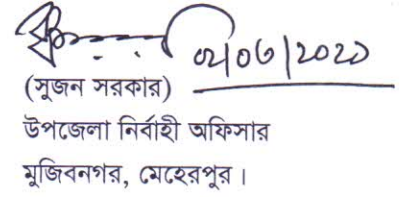 ০২/০৬/২০২১
(সুজন সরকার)
উপজেলা নির্বাহী অফিসার
মুজিবনগর, মেহেরপুর।